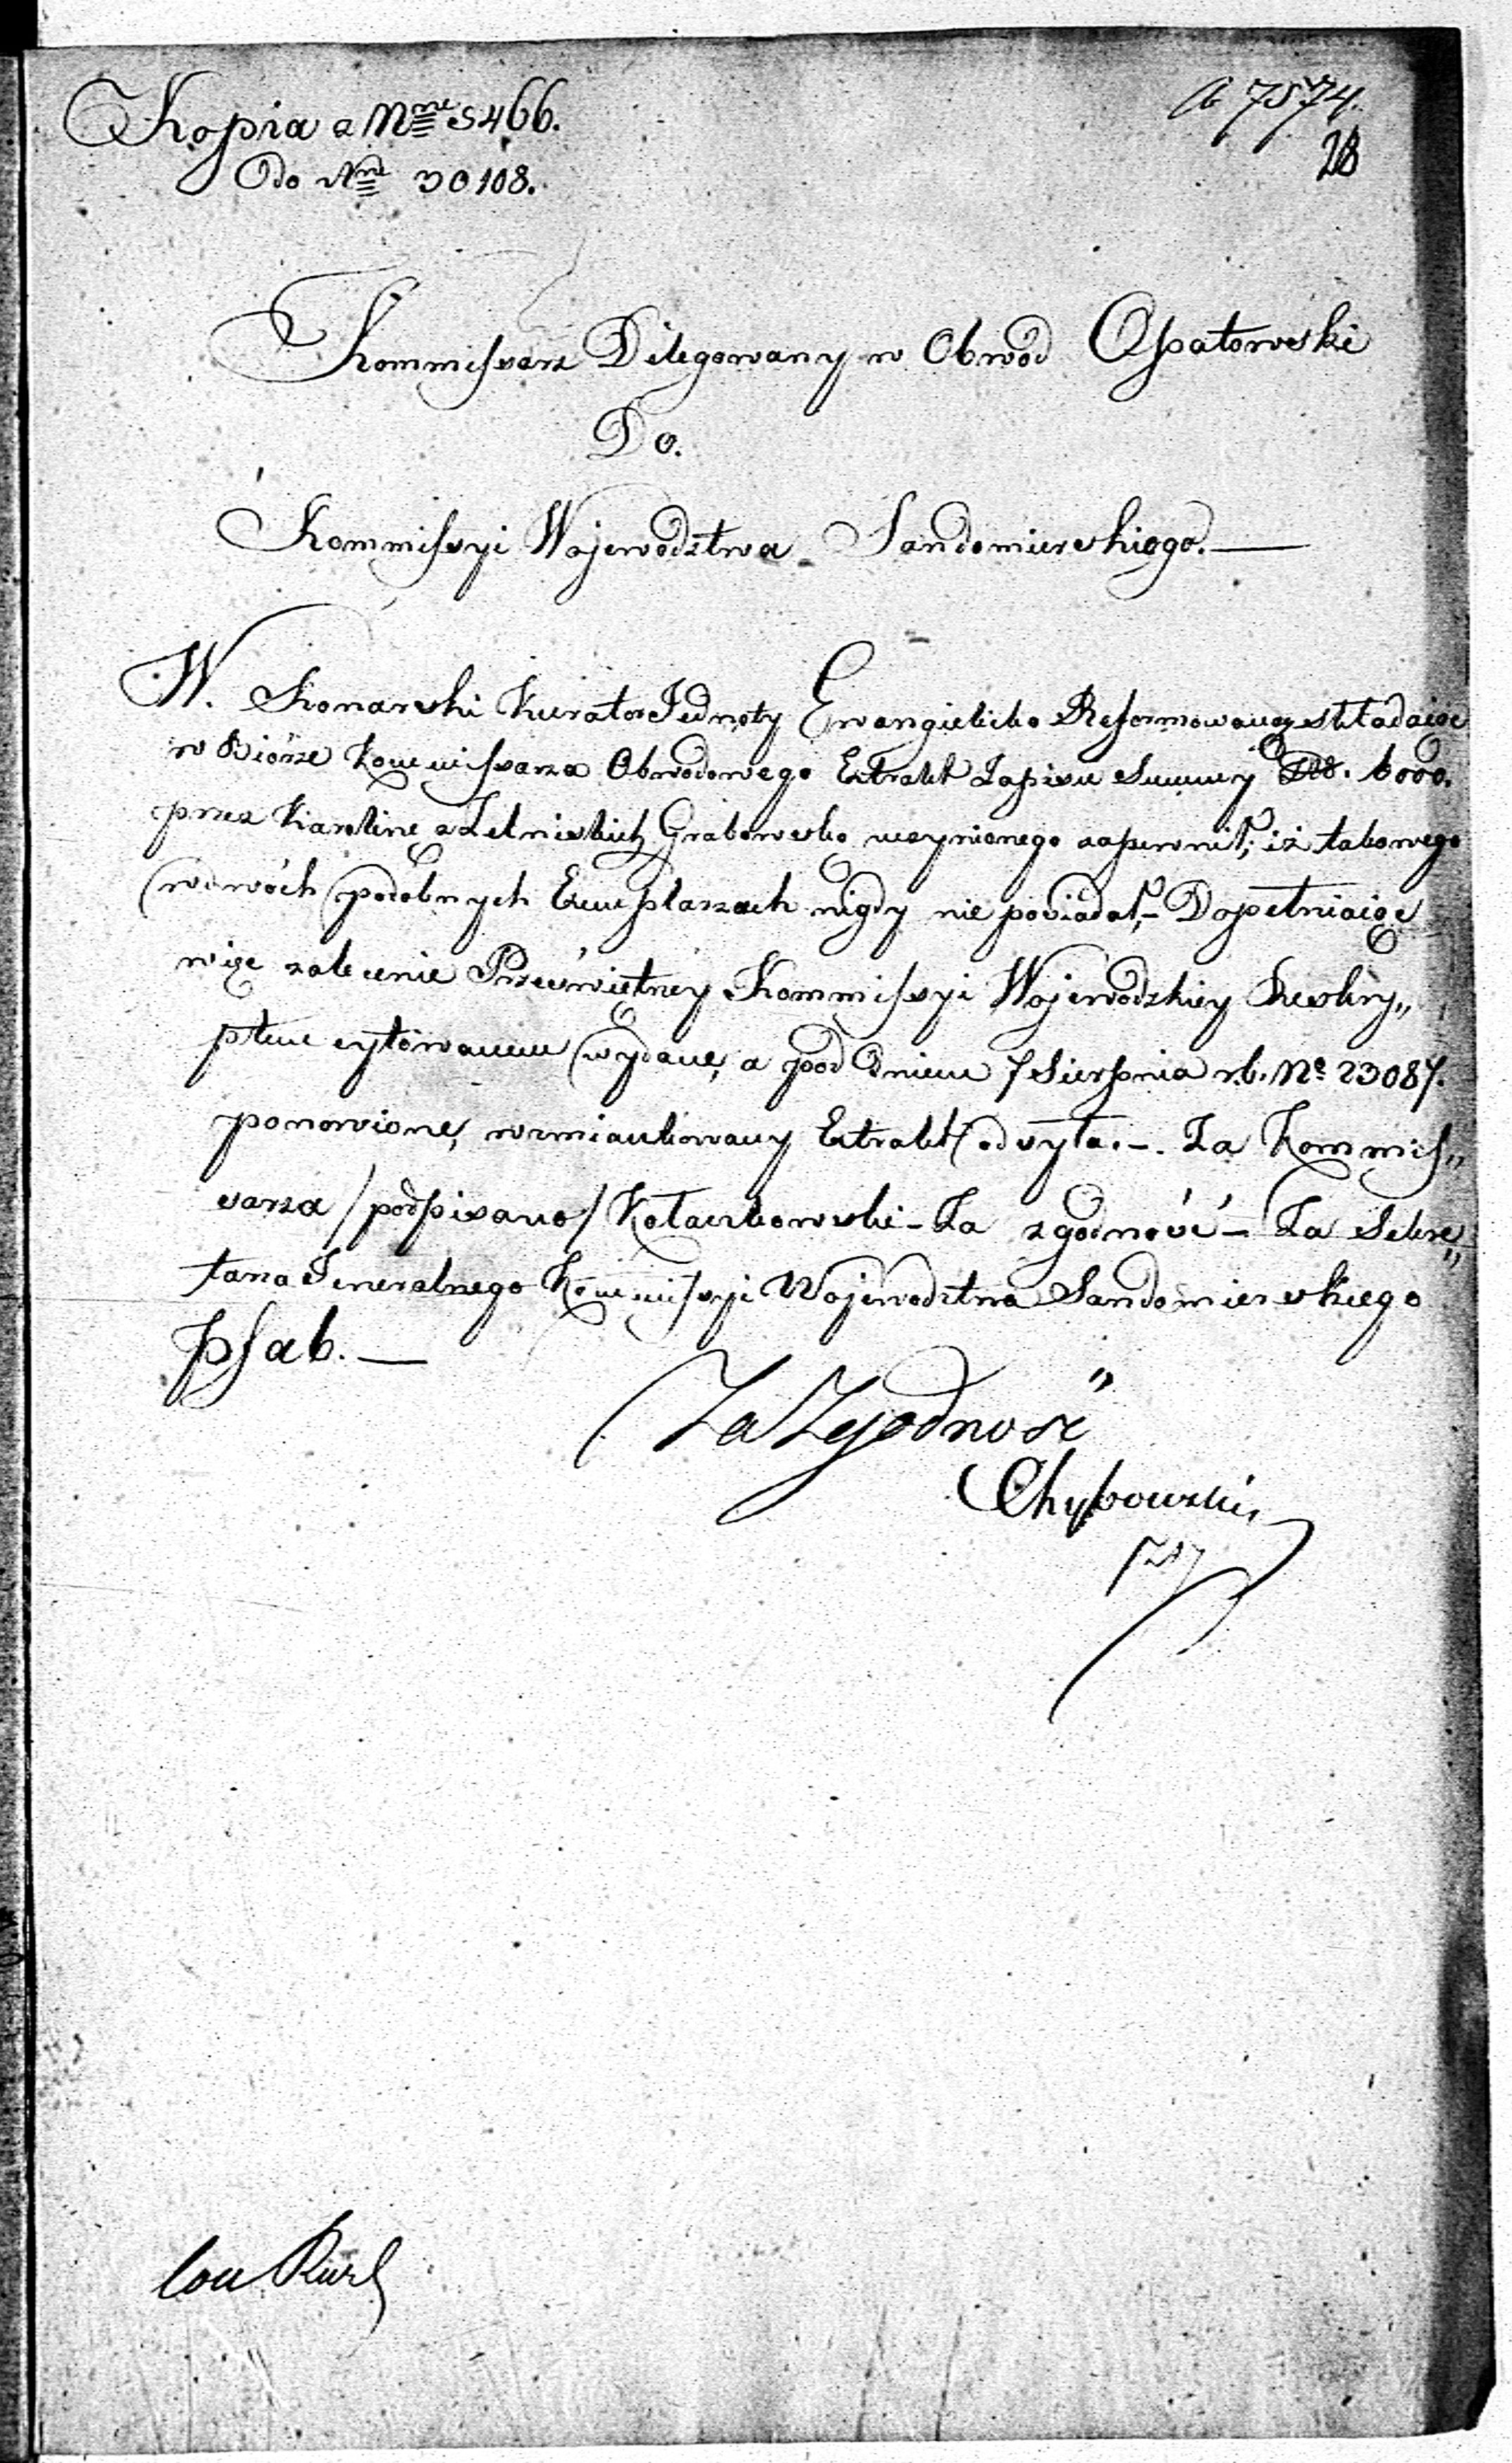 Kopia a Nrne 5466.
Do Nrne 30108.
A 7574.
28
Kommissarz Delegowany w Obwod Opatowski
Do.
Kommissyi Wojewodztwa Sandomierskiego.
W. Konarski Kurator Jednoty Ewangielicko Reformowaney składaiąc
w Biórze Kommissarza Obwodowego Extrakt Zapisu Summy Złł. 6000.
przez Karolinę z Zelniskich Grabowską uczynionego zapewnił, iż takowego
w dwóch podobnych Exemplarzach nigdy nie posiadał, – Dopełniaiąc
więc zalecenie Prześwietney Kommissyi Wojewodzkiey Reskry„
ptem cytowanem wydane, a pod dniem 7 Sierpnia r.b. No 23087.
ponowione, wzmiankowany Extrakt odsyła. – Za Kommis„
sarza /podpisano/ Kołaczkowski – Za zgodność – Za Sekre„
tarza Jeneralnego Kommissyi Wojewodztwa Sandomierskiego
Psab. —
Za Zgodność
Chybowski